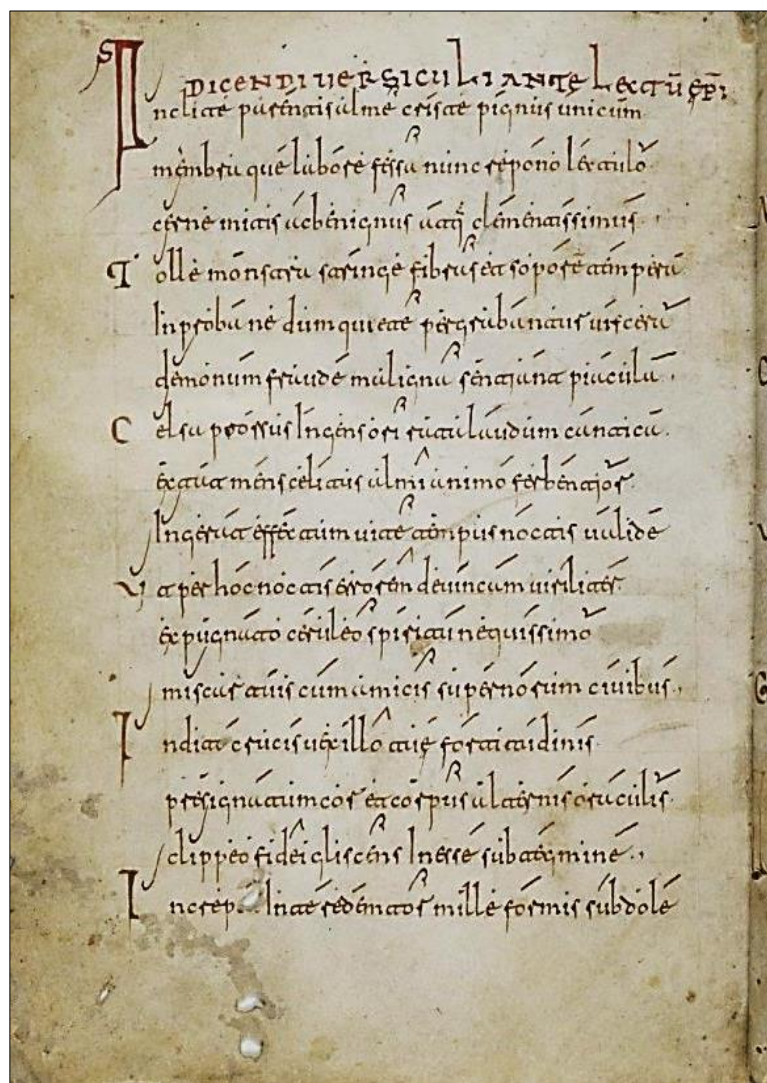 DICENDI UERSICULI ANTE LECTŪ
Inclite parentis alme criste pignus unicum
membra que labore fessa nunc repono lectulo
cerne mitis ac benignus atq clementissimus
Tolle monstra stringe fibras et sopore tempera
Inproba ne dum quiete pergrabantur uiscera
demonum fraude maligna sentiant piacula
Celsa prorsus Ingens ori ructa laudum cantica
extat mens celitus almi animo ferbentior
Ingerat effectum uite tempus noctis ualide
Ut per hoc noctis errorem deuincam uiriliter
expugnato ceruleo spiritu nequissimo
miscar tuis cum amicis supernorum ciuibus
Indita crucis uexillo tue fortitudinis
persignatum cor et corpus alternis oraculis
clippeo fidei gliscens Inesse subtegmine
Inte redemtor mille formis subdole